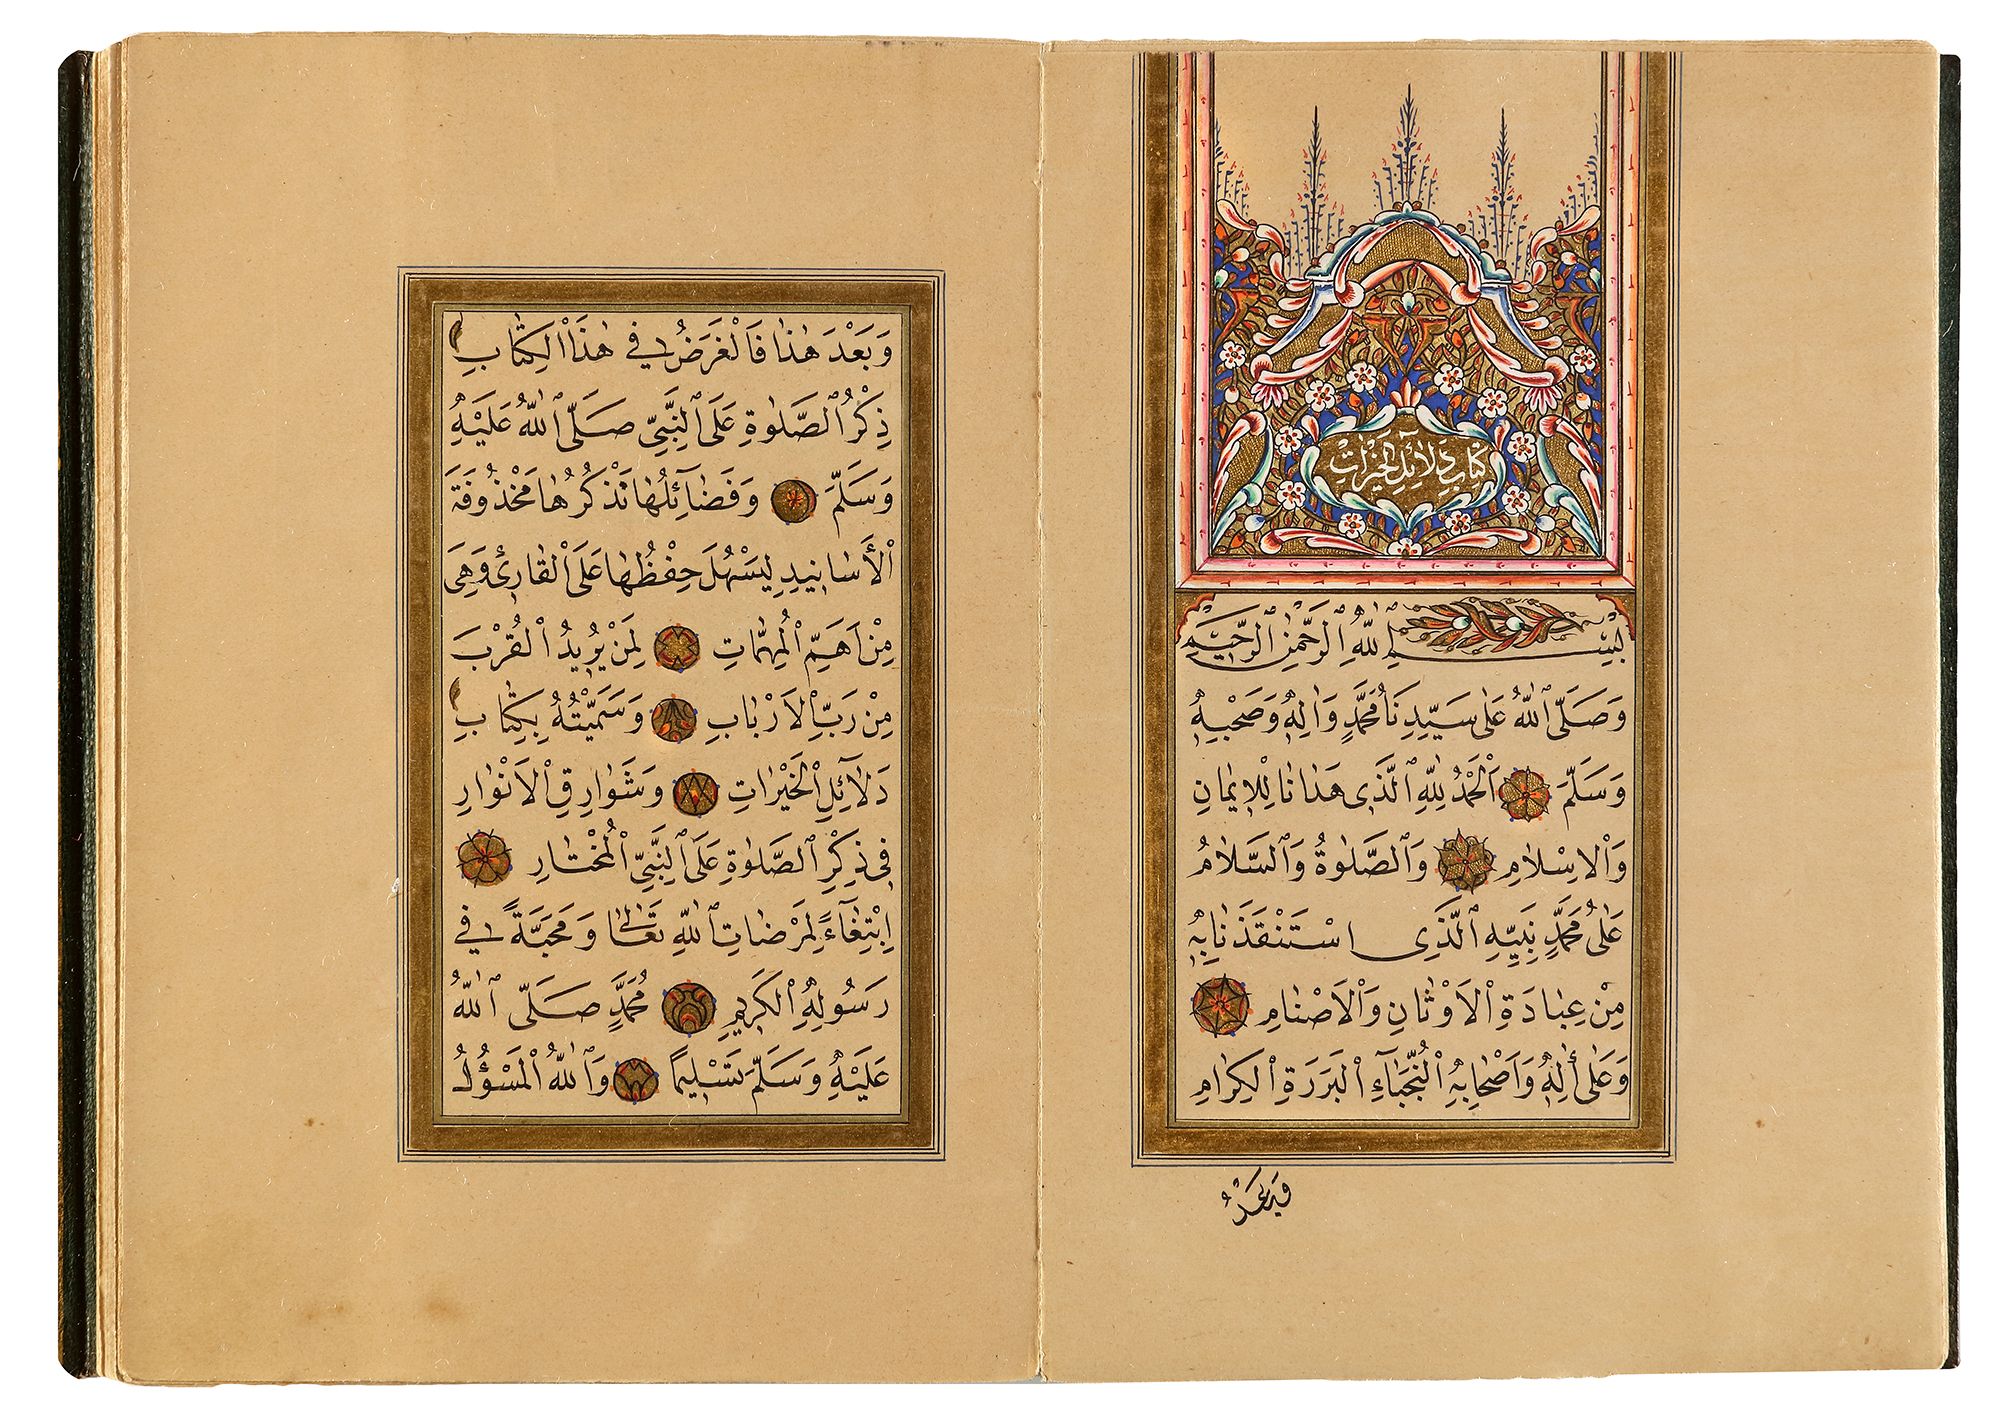 كِتَابُ دَلَائِلِ الْخَيْرَاتِ
بِسْمِ اللّٰهِ الرَّحْمٰنِ الرَّحِيمِ
وَصَلَّى اللّٰهُ عَلٰى سَيِّدِنَا مُحَمَّدٍ وَاٰلِهٖ وَصَحْبِهٖ
وَسَلَّمَ اَلْحَمْدُ لِلّٰهِ الَّذٖى هَدَانَا لِلْاٖيمَانِ
وَالْاِسْلَامِ وَالصَّلٰوةُ وَالسَّلَامُ
عَلٰى مُحَمَّدٍ نَبِيِّهِ الَّذٖى اسْتَنْقَذَنَا بِهٖ
مِنْ عِبَادَةِ الْاَوْثَانِ وَالْاَصْنَامِ
وَعَلٰى اٰلِهٖ وَاَصْحَابِهِ النُّجَبَاءِ الْبَرَرَةِ الْكِرَامِ
وَبَعْدُ
وَبَعْدَ هٰذَا فَالْغَرَضُ فٖى هٰذَا الْكِتَابِ
ذِكْرُ الصَّلٰوةِ عَلَى النَّبِيِّ صَلَّى اللّٰهُ عَلَيْهِ
وَسَلَّمَ وَفَضَآئِلُهَا نَذْكُرُهَا مَحْذُوفَةَ
الْأَسَانٖيدِ لِيَسْهُلَ حِفْظُهَا عَلَى الْقَارِئِ وَهِىَ
مِنْ اَهَمِّ الْمُهِمَّاتِ لِمَنْ يُرٖيدُ الْقُرْبَ
مِنْ رَبِّ الْاَرْبَابِ وَسَمَّيْتُهُ بِكِتَابِ
دَلَآئِلِ الْخَيْرَاتِ وَشَوَارِقِ الْاَنْوَارِ
فٖى ذِكْرِ الصَّلٰوةِ عَلَى النَّبِيِّ الْمُخْتَارِ
اِبْتِغَآءً لِمَرْضَاتِ اللّٰهِ تَعَالٰى وَمَحَبَّةً فٖى
رَسُولِهِ الْكَرٖيمِ مُحَمَّدٍ صَلَّى اللّٰهُ
عَلَيْهِ وَسَلَّمَ تَسْلٖيمًا وَاللّٰهُ الْمَسْؤُلُ